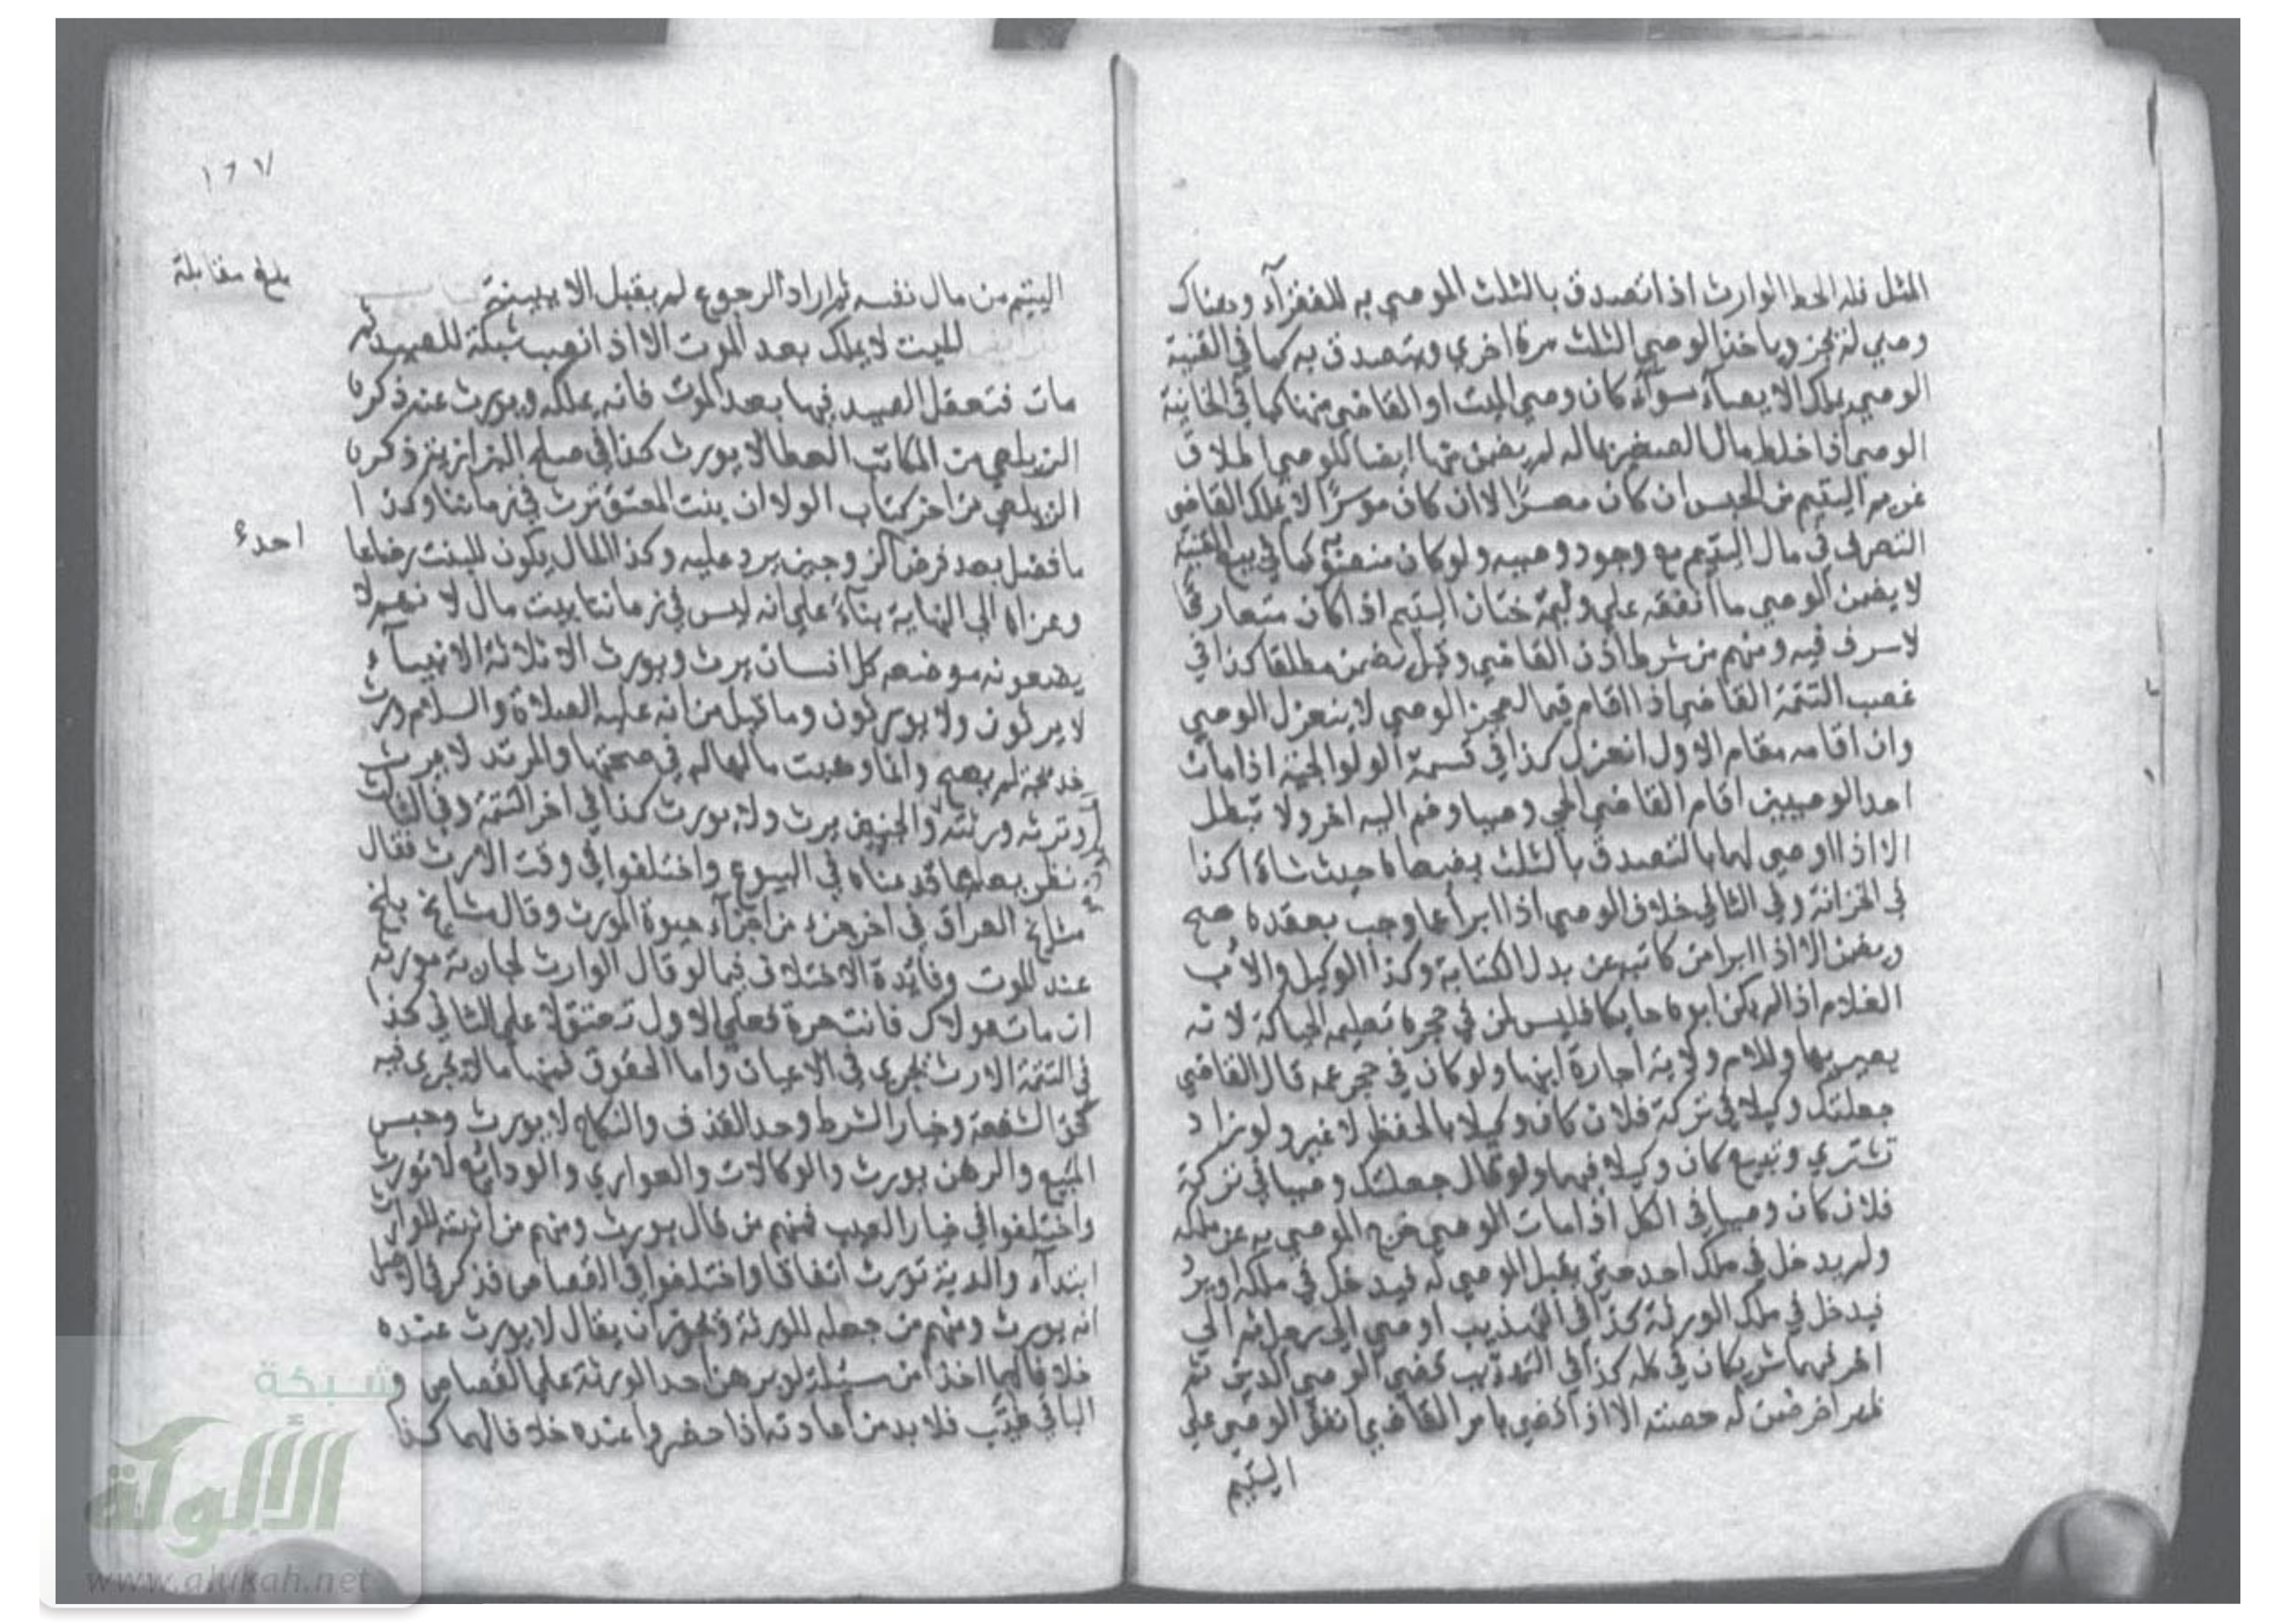 المثل فله الحط الوارث اذا تصدق بالثلث الموصي به للفقرآء وهناك
وصي لم تجز وياخذ الوصي الثلث مرة اخري ويتصدق به كما في القنية
الوصي يملك الايصآء سوآء كان وصي الميت او القاضي منها كما في الخانية
الوصي اذا خلط مال الصغير بماله لم يضمن منها ايضا للوصي اطلاق
غريم اليتيم من الحبس ان كان معسرًا لا ان كان موسرًا لا يملك القاضي
التصرف في مال اليتيم مع وجود وصيه ولو كان منصوبه كما في بيع القنية
لا يضمن الوصي ما انفقه علي وليمة ختان اليتيم اذا كان متعارفا
لا سرف فيه ومنهم من شرط اذن القاضي وقيل يضمن مطلقا كذا في
غصب التتمة القاضي اذا اقام قيما لعجز الوصي لا ينعزل الوصي
وان اقامه مقام الاول انعزل كذا في قسمة الولوالجية اذا مات
احد الوصيين اقام القاضي الحي وصيا وضم اليه اخر ولا تبطل
الا اذا اوصي لهما بالتصدق بالثلث يضعاه حيث شاءا كذا
في الخزانة وفي الثاني خلاف الوصي اذا ابرأ عما وجب بعقده صح
ويضمن الا اذا ابرا من كاتبه عن بدل الكتابة وكذا الوكيل والاب
الغلام اذا لم يكن ابوه حايكا فليس لمن في حجره تعليمه الحياكة لانه
يعير بها وللام ولاية اجارة ابنها ولو كان في حجر عمه قال القاضي
جعلتك وكيلا في تركة فلان كان وكيلا بالحفظ لا غير ولو زاد
تشتري وتبيع كان وكيلا فيها ولو قال جعلتك وصيا في تركة
فلان كان وصيا في الكل اذا مات الوصي خرج الموصي به عن ملكه
ولم يدخل في ملك احد حتي يقبل الموصي له فيدخل في ملكه او يرد
فيدخل في ملك الورثة كذا في التهذيب اوصي الي رجل ثم الي
اخر فهما شريكان في كله كذا في التهذيب قضي الوصي الدين ثم
ظهر اخر ضمن له حصته الا اذا قضي بامر القاضي انفق الوصي علي
اليتيم
١٦٧
بلغ مقابلة
اليتيم من مال نفسه ثم اراد الرجوع لم يقبل الا ببينة
للميت لا يملك بعد الموت الا اذا نصب شبكة للصيد ثم
مات فتعقل الصيد فيها بعد الموت فانه يملكه ويورث عنه ذكره
الزيلعي من المكاتب العطا لا يورث كذا في صلح البزازية ذكر
الزيلعي من اخر كتاب الولا ان بنت المعتق ترث في زماننا وكذا
ما فضل بعد فرض احد الزوجين يرد عليه وكذا المال يكون للبنت رضاعا
احدء
وعزاه الي النهاية بناءً علي انه ليس في زماننا بيت مال لانهم لا
يضعونه موضعه كل انسان يرث ويورث الا ثلاثة الانبيآء
لا يرثون ولا يورثون وما قيل من انه عليه الصلاة والسلام ورث
خديجة لم يصح وانما وهبت مالها له في صحتها والمرتد لا يرث
وترثه ورثته والجنين يرث ولا يورث كذا في اخر التتمة وفي الثالث
نظر يعلم مما قدمناه في البيوع واختلفوا في وقت الارث فقال
مشايخ العراق في اخر جزء من اجزآء حيوة المورث وقال مشايخ بلخ
عند الموت وفائدة الاختلاف فيما لو قال الوارث لجارية مورثه
ان مات مولاك فانت حرة فعلي الاول تعتق لا علي الثاني كذا
في التتمة الارث يجري في الاعيان واما الحقوق فمنها ما لا يجري فيه
كحق الشفعة وخيار الشرط وحد القذف والنكاح لا يورث وحبس
المبيع والرهن يورث والوكالات والعواري والودائع لا تورث
واختلفوا في خيار العيب فمنهم من قال يورث ومنهم من اثبته للوارث
ابتدآء والدية تورث اتفاقا واختلفوا في القصاص فذكر في الاصل
انه يورث ومنهم من جعله للورثة ويجوز ان يقال لا يورث عنده
خلافا لهما اخذا من مسئلة لو برهن احد الورثة علي القصاص و
الباقي غيّب فلا بد من اعادته اذا حضروا عنده خلافا لهما كذا
شبكة
الألوكة
www.alukah.net